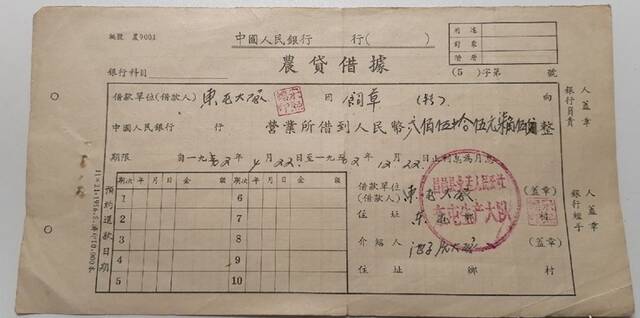 編號 農9001
中國人民銀行 行( )
用途
對象
險度
銀行科目
農貸借據
(5)字第 號
借款單位(借款人) 東屯大隊 因 飼草 向
中國人民銀行 行 營業所借到人民幣 貳佰伍拾伍元 整
期限 自一九 年4月22日至一九 年12月22日止利息為月息
銀行員責人蓋章
期次 年 月 日 金額 期次 年 月 日 金額
1 6
2 7
3 8
4 9
5 10
預約還款日期
借款單位(借款人) 東屯大隊 (蓋章)
住址 東屯 鄉 村
介紹人 (蓋章)
住址 鄉 村
東屯生产大队
銀行經手人蓋章